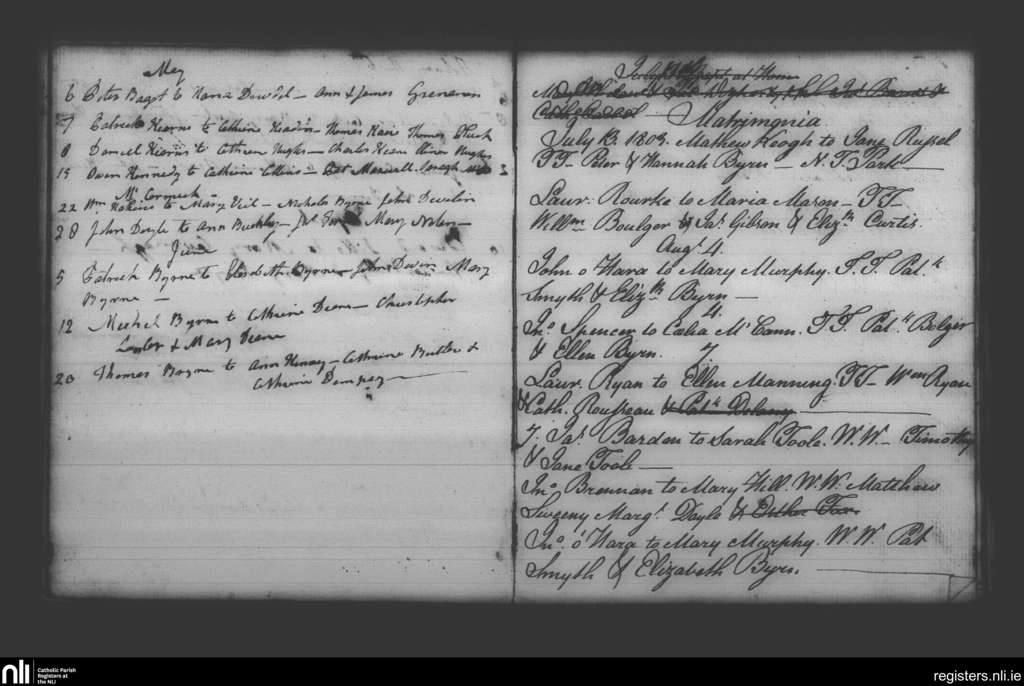 May
6 Peter Bagot to Maria Dowdel – Ann & James
7 Patrick Kearns to Cathrin – Thomas Kave Thomas
8 Daniell Kearns to Cathren Hughs – Charles Keane Hughs
15 Owen Kennedy to Cathrine Collins – Pat Joseph
Mc Cormick
22 Wm to Mary Neil – Nichols Byrne John Devilin
28 John Doyle to Ann Buckley – Mary Nolan –
June
5 Patrick Byrne to Elizabeth Byrne – John Dwin Mary
Byrne –
12 Michel Byrne to Cathrine Deane – Christopher
Lawler & Mary Deane
20 Thomas Bayne to Ann Heney – Cathrine Butler &
Cathrine Dempsey –
at Home
Matrimonia.
July 13. 1803. Mathew Keogh to Jane Russel
TT – Peter & Hannah Byrn – N. T. Park –
Lawr: Rourke to Maria Mason – TT –
Willm Boulger & Jas. Gibson & Elizth Curtis.
Augt. 4.
John o Hara to Mary Murphy. T.T. Patk
Smyth & Elizth Byrn –
4.
Jno. Spencer to Celia Mc Cann. T.T. Patk Bolger
& Ellen Byrn. 7.
Lawr. Ryan to Ellen Manning. TT – Wm Ryan
& Cath. Rousseau & Patk Delany
7. Jas. Barden to Sarah Toole. W.W. – Timothy
& Jane Toole –
Jno. Brennan to Mary Hill. W.W. Matthew
Sweeny Margt. Doyle & Esther Fox.
Jno. o' Hara to Mary Murphy. W.W. Pat
Smyth & Elizabeth Byrn.
nli Catholic Parish
Registers at
the NLI
registers.nli.ie